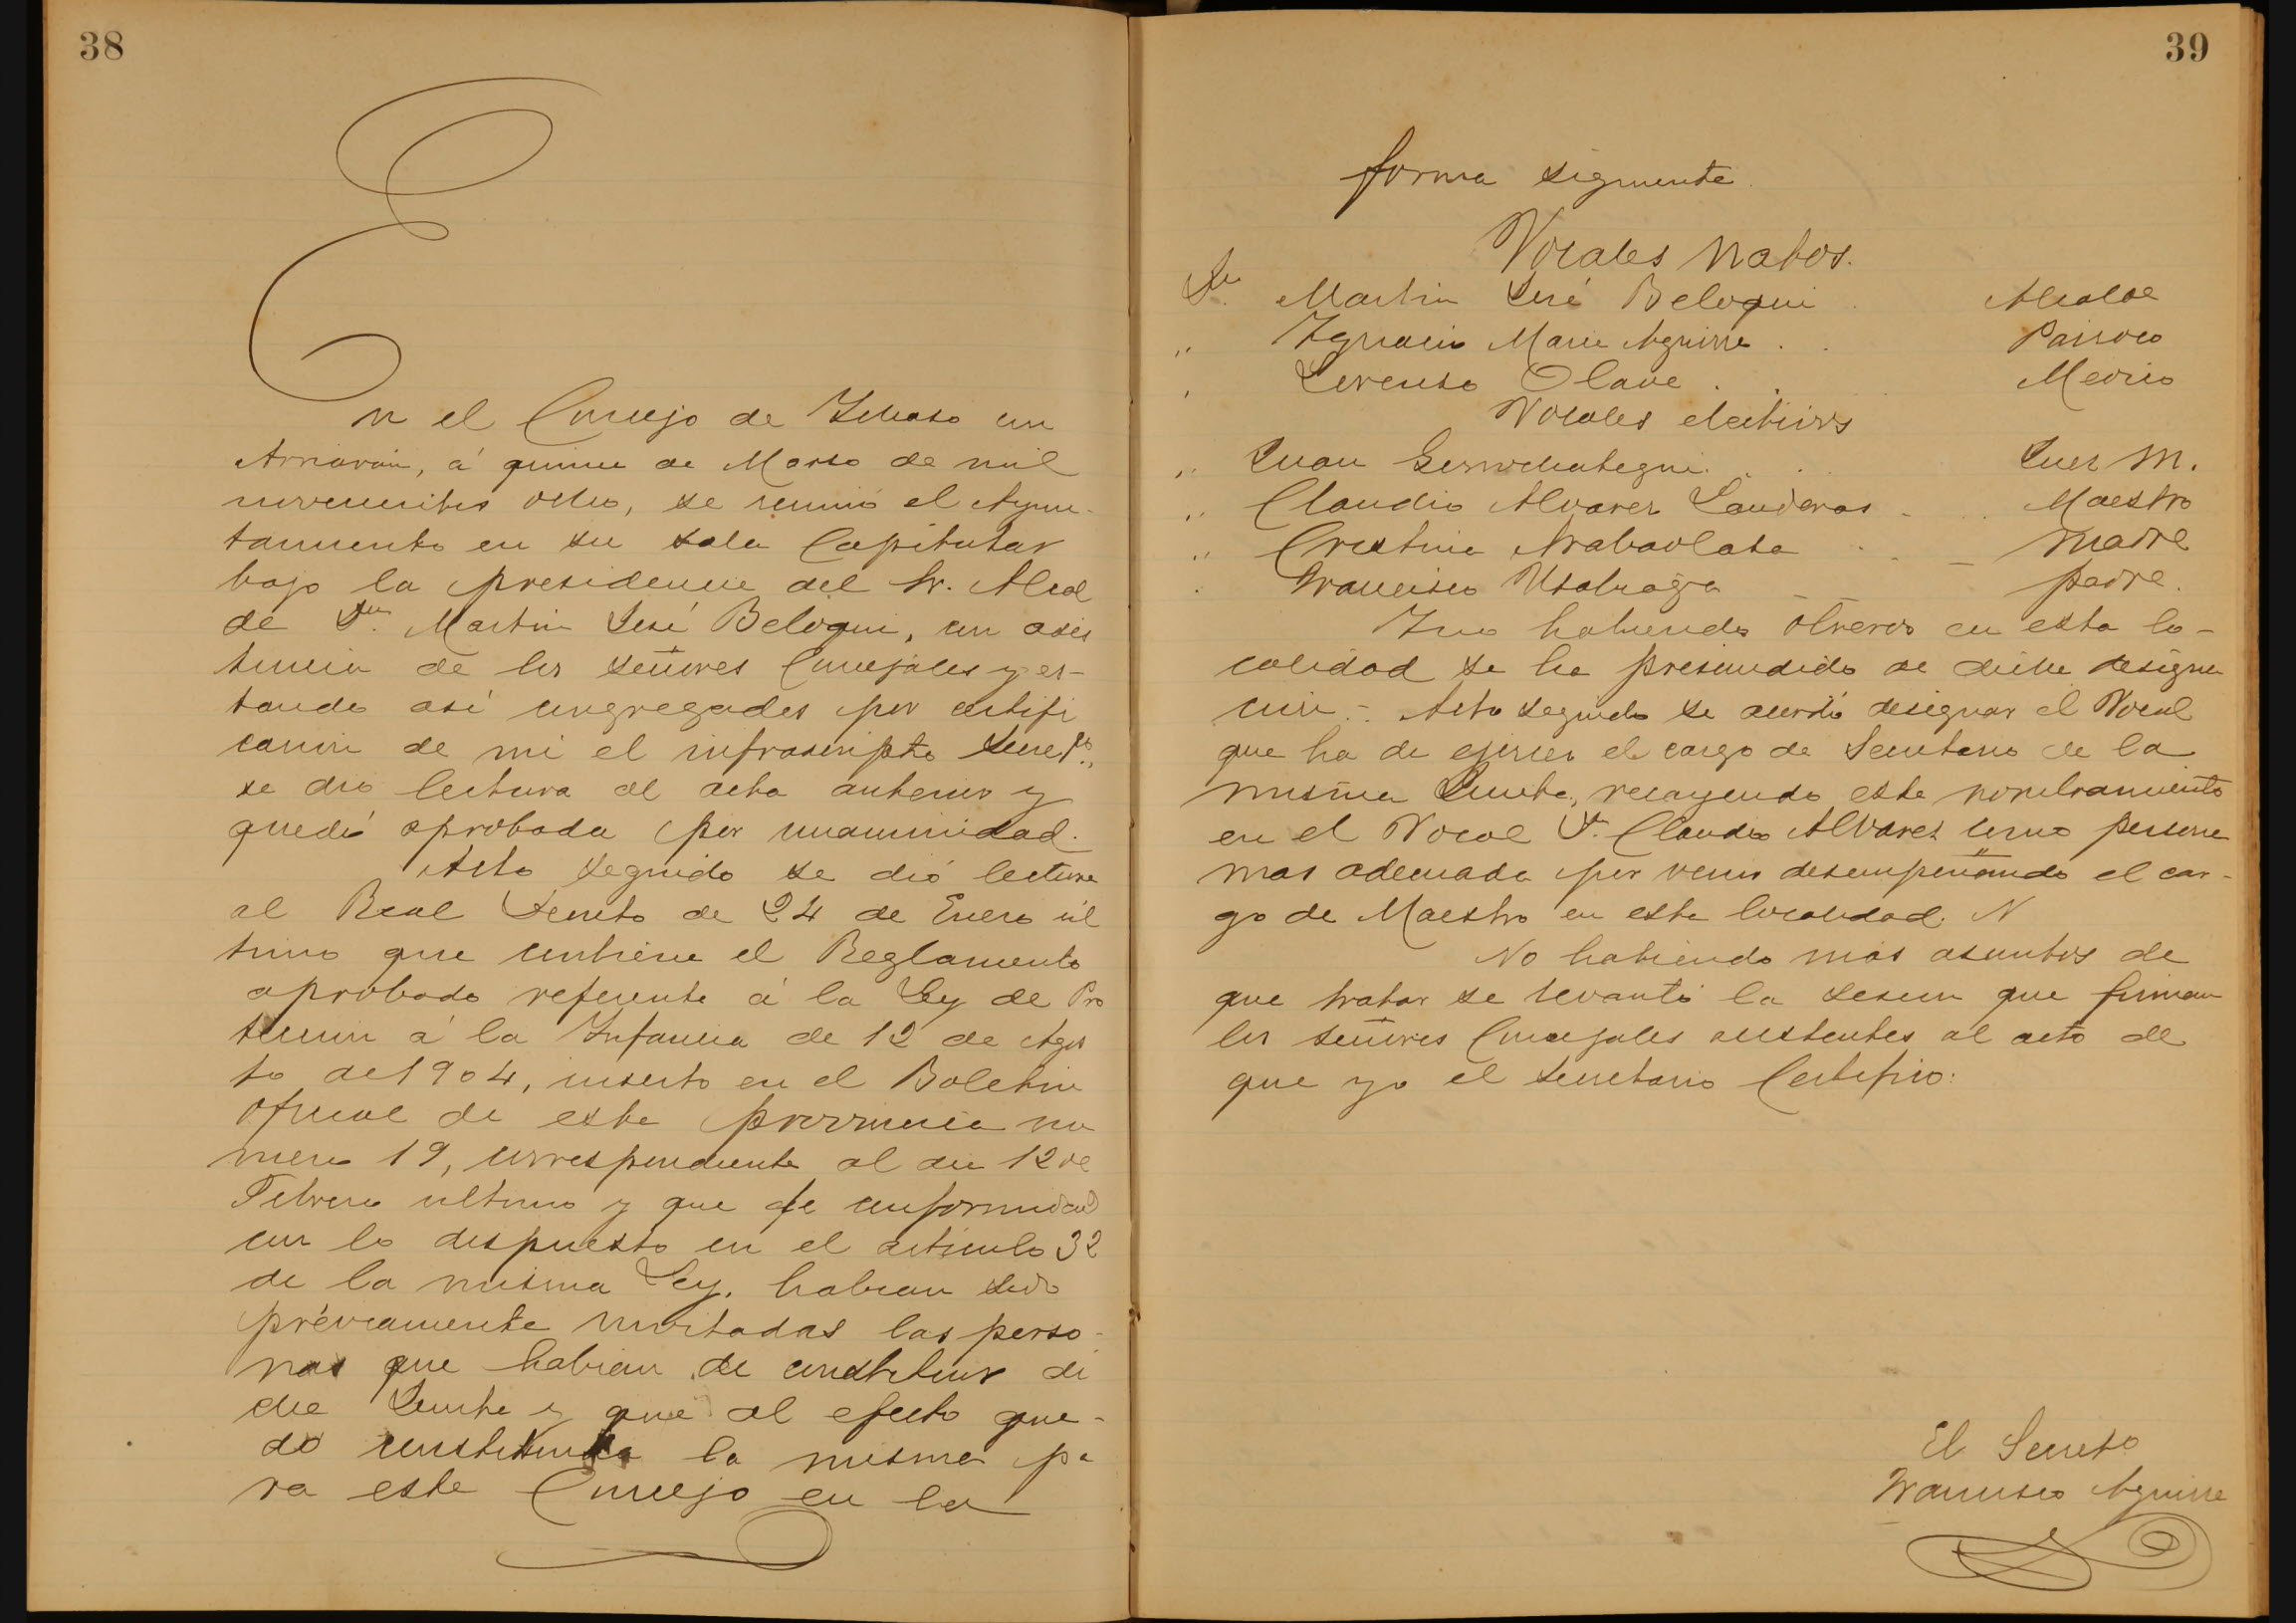 38
En el Concejo de Ichaso con
Arriarán, á quince de Marzo de mil
novecientos ocho, se reunió el Ayun-
tamiento en su sala Capitular
bajo la presidencia del Sr. Alcal
de Dn. Martin José Beloqui, con asis
tencia de los señores Concejales y es-
tando así congregados por certifi
cacion de mi el infrascripto Secretº.,
se dio lectura al acta anterior y
quedó aprobada por unanimidad.
Acto seguido se dió lectura
al Real Decreto de 24 de Enero úl
timo que contiene el Reglamento
aprobado referente á la Ley de Pro
teccion á la Infancia de 12 de Agos
to de 1904, inserto en el Boletin
oficial de esta provincia nu
mero 19, correspondiente al dia 12 de
Febrero ultimo y que de conformidad
con lo dispuesto en el articulo 32
de la misma Ley, habian sido
préviamente invitadas las perso-
nas que habian de constituir di
cha Junta y que al efecto que-
do constituida la misma pa
ra este Concejo en la
39
forma siguiente
Vocales natos.
Dn. Martin José Beloqui Alcalde
" Ygnacio Maria Aguirre . . Párroco
" Lorenzo Olave . . Medico
Vocales electivos
" Juan Gorrochategui . . Juez M.
" Claudio Alvarez Landeras - Maestro
" Cristina Arabaolaza - - madre
" Francisco Usabiaga - - padre.
Y no habiendo obreros en esta lo-
calidad se ha prescindido de dicha designa
cion.- Acto seguido se acordó designar el Vocal
que ha de ejercer el cargo de Secretario de la
misma Junta, recayendo este nombramiento
en el Vocal D. Claudio Alvarez como persona
mas adecuada por venir desempeñando el car-
go de Maestro en esta localidad. N
No habiendo más asuntos de
que tratar se levantó la sesion que firman
los señores Concejales asistentes al acto de
que yo el Secretario Certifico:
El Secreto
Francisco Aguirre